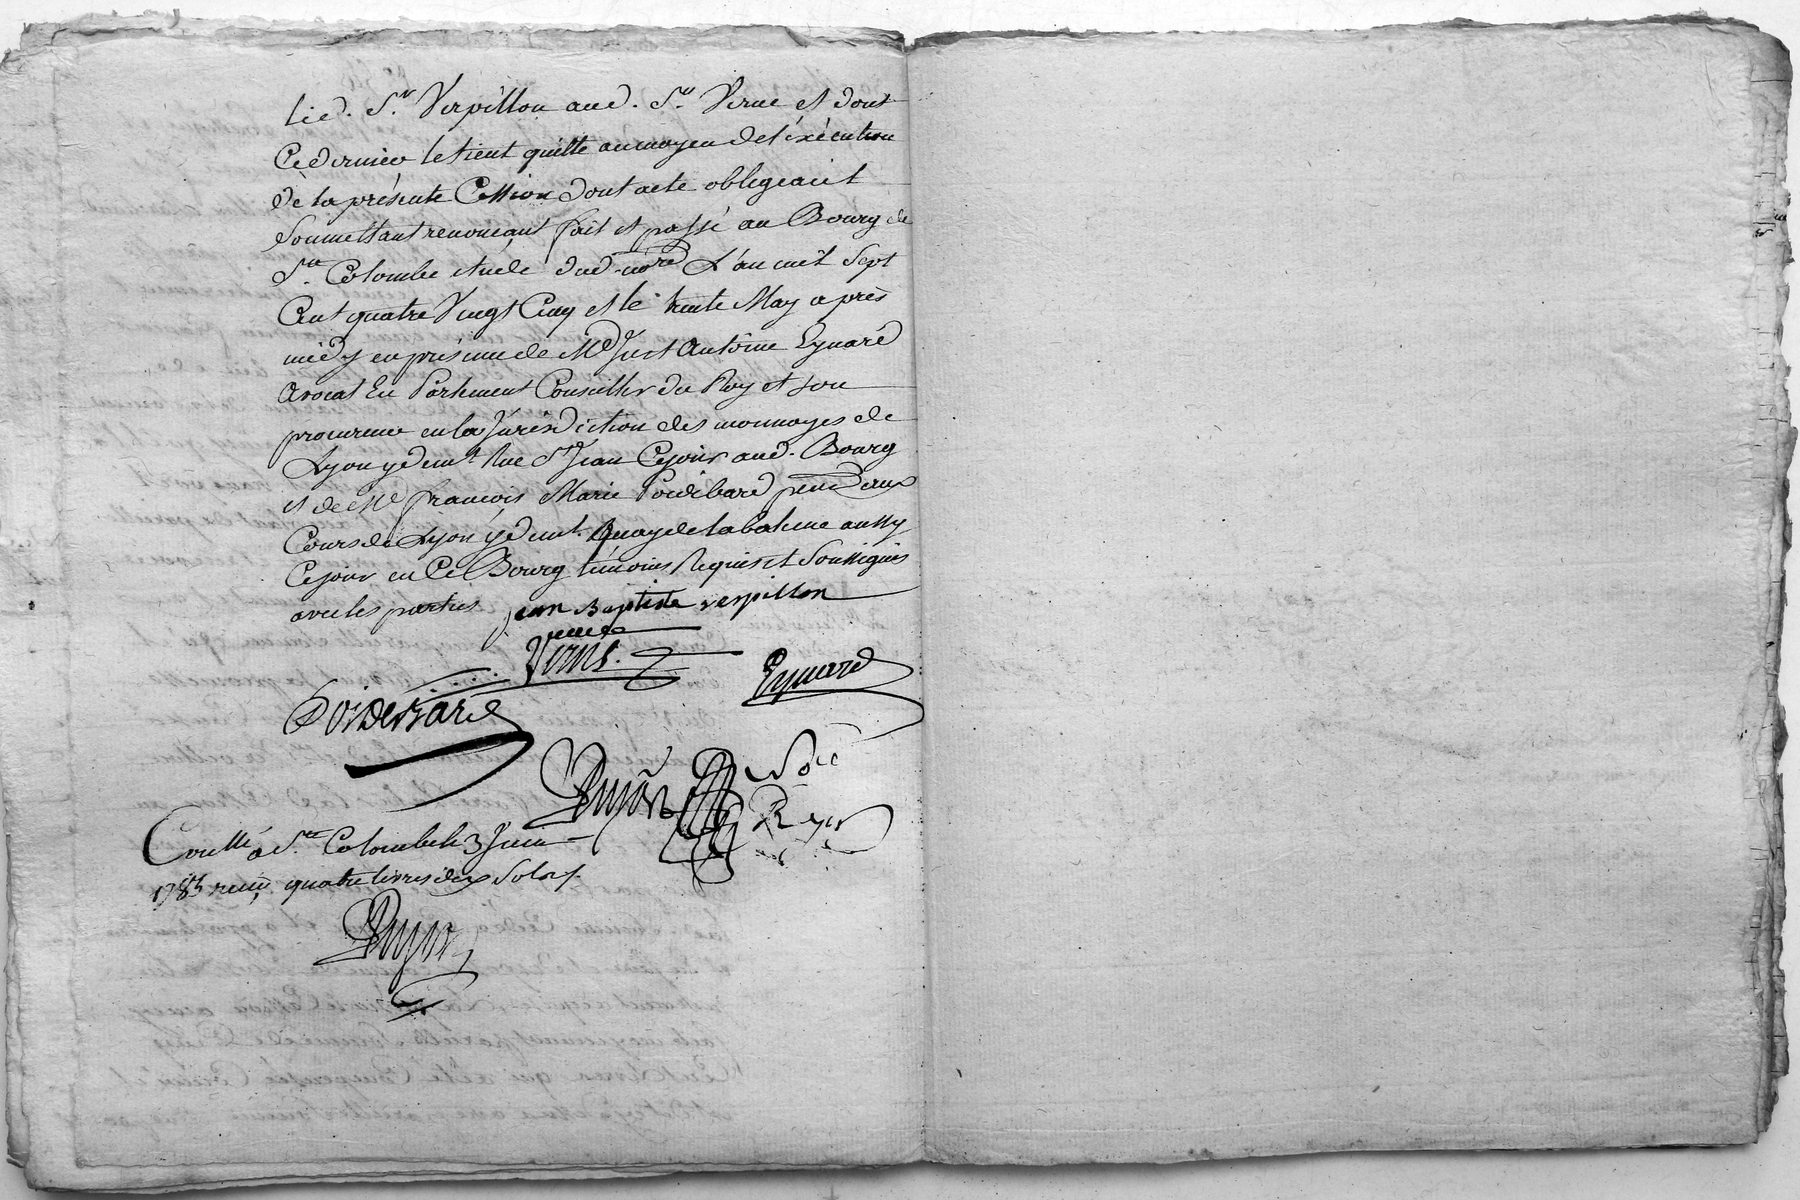 led. Sr. Verpillon aud. Sr. Verne et dont
ce dernier le tient quitte au moyen de l'éxécution
de la présente Cession dont acte obligeant
Soumettant renonceant fait et passé au Bourg de
Ste. Colombe étude dud. nore L'an mil Sept
Cent quatre Vingt Cinq et le trente May après
midy en présence de Me Just Antoine Eynard
Avocat En Parlement Conseiller du Roy et son
procureur en la Jurisdiction des monnoyes de
Lyon y demt. Rue St Jean Cejour aud. Bourg
et de Me françois Marie Poidebard aux
Cours de Lyon y demt. Quay de la baleine aussy
Cejour en Ce Bourg témoins Requis et Soussignés
avec les parties jean Baptiste verpillon
Verne
Eynard
Poidebard
Dujon nore
Rer
Conllé à Ste. Colombe le 3 Juin
1785 reçu quatre livres dix Sols
Dujon